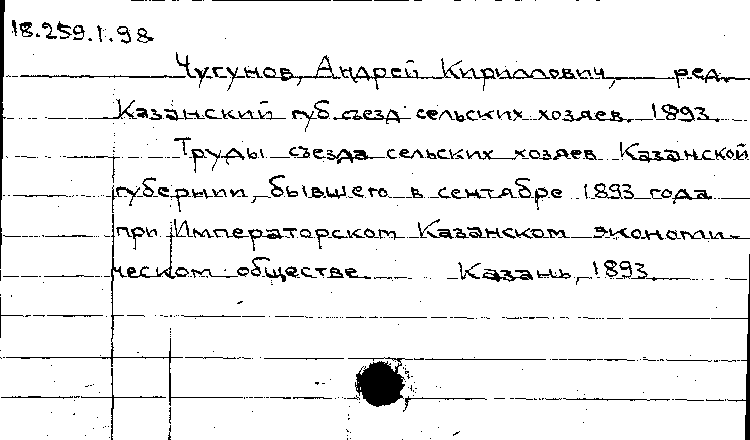 18.259.1.98
Чугунов, Андрей Кириллович, ред.
Казанский губ. съезд сельских хозяев. 1893.
Труды съезда сельских хозяев Казанской
губернии, бывшего в сентябре 1893 года
при Императорском Казанском экономи-
ческом обществе. Казань, 1893.